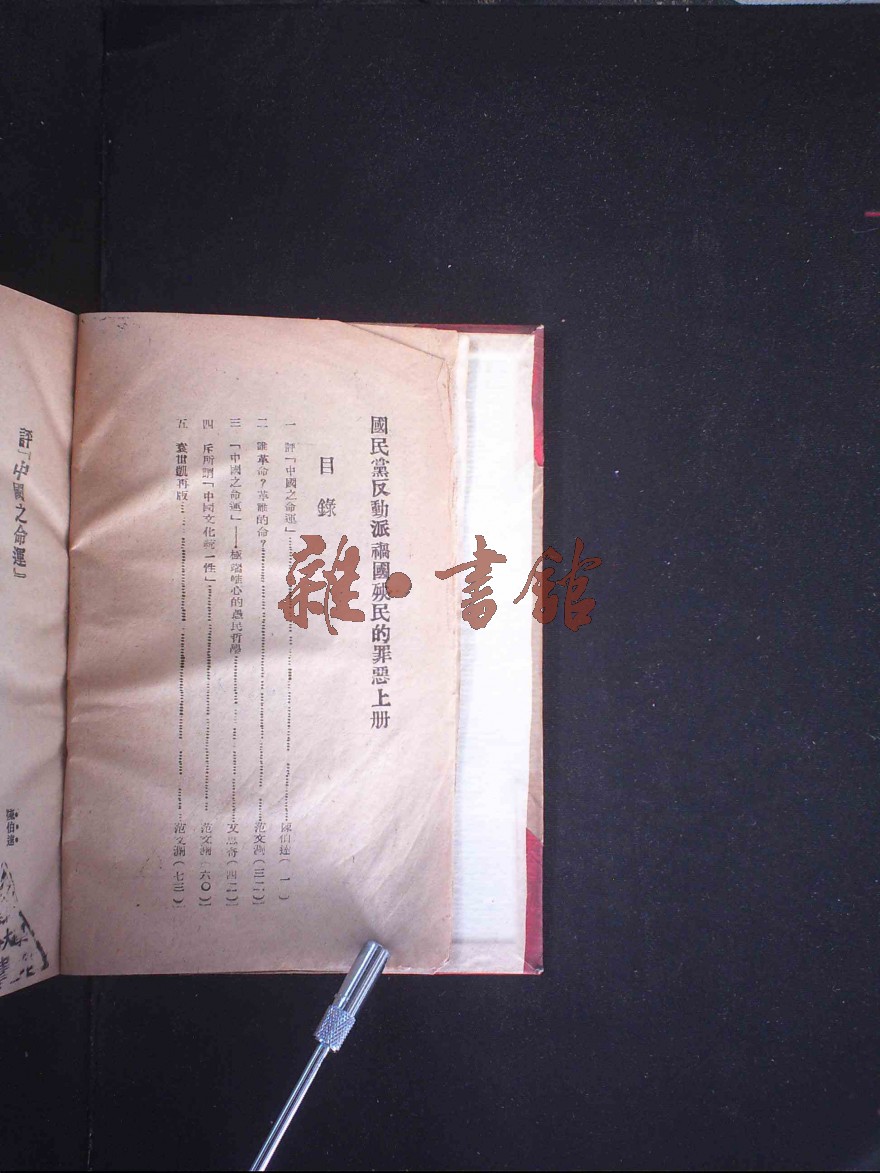 國民黨反動派禍國殃民的罪惡上册
目錄
一 評「中國之命運」 陳伯達(一)
二 誰革命?革誰的命? 范文瀾(三二)
三 「中國之命運」——極端唯心的愚民哲學 艾思奇(四二)
四 斥所謂「中國文化統一性」 范文瀾(六〇)
五 袁世凱再版 范文瀾(七三)
評「中國之命運」
陳伯達
雜·書館